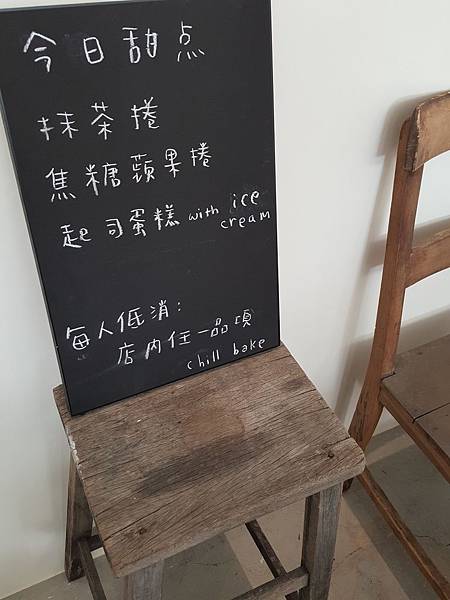 今日甜点
抹茶捲
焦糖蘋果捲
起司蛋糕 with ice cream
每人低消：
店內任一品項
chill bake